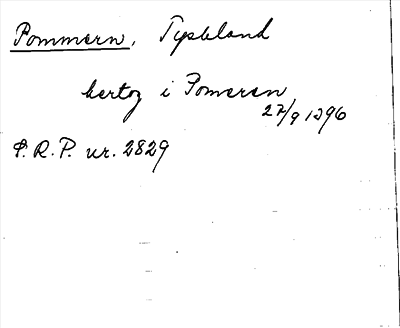 Pommern, Tyskland
hertog i Pomeren
27/9 1296
P.R.P. nr. 2829